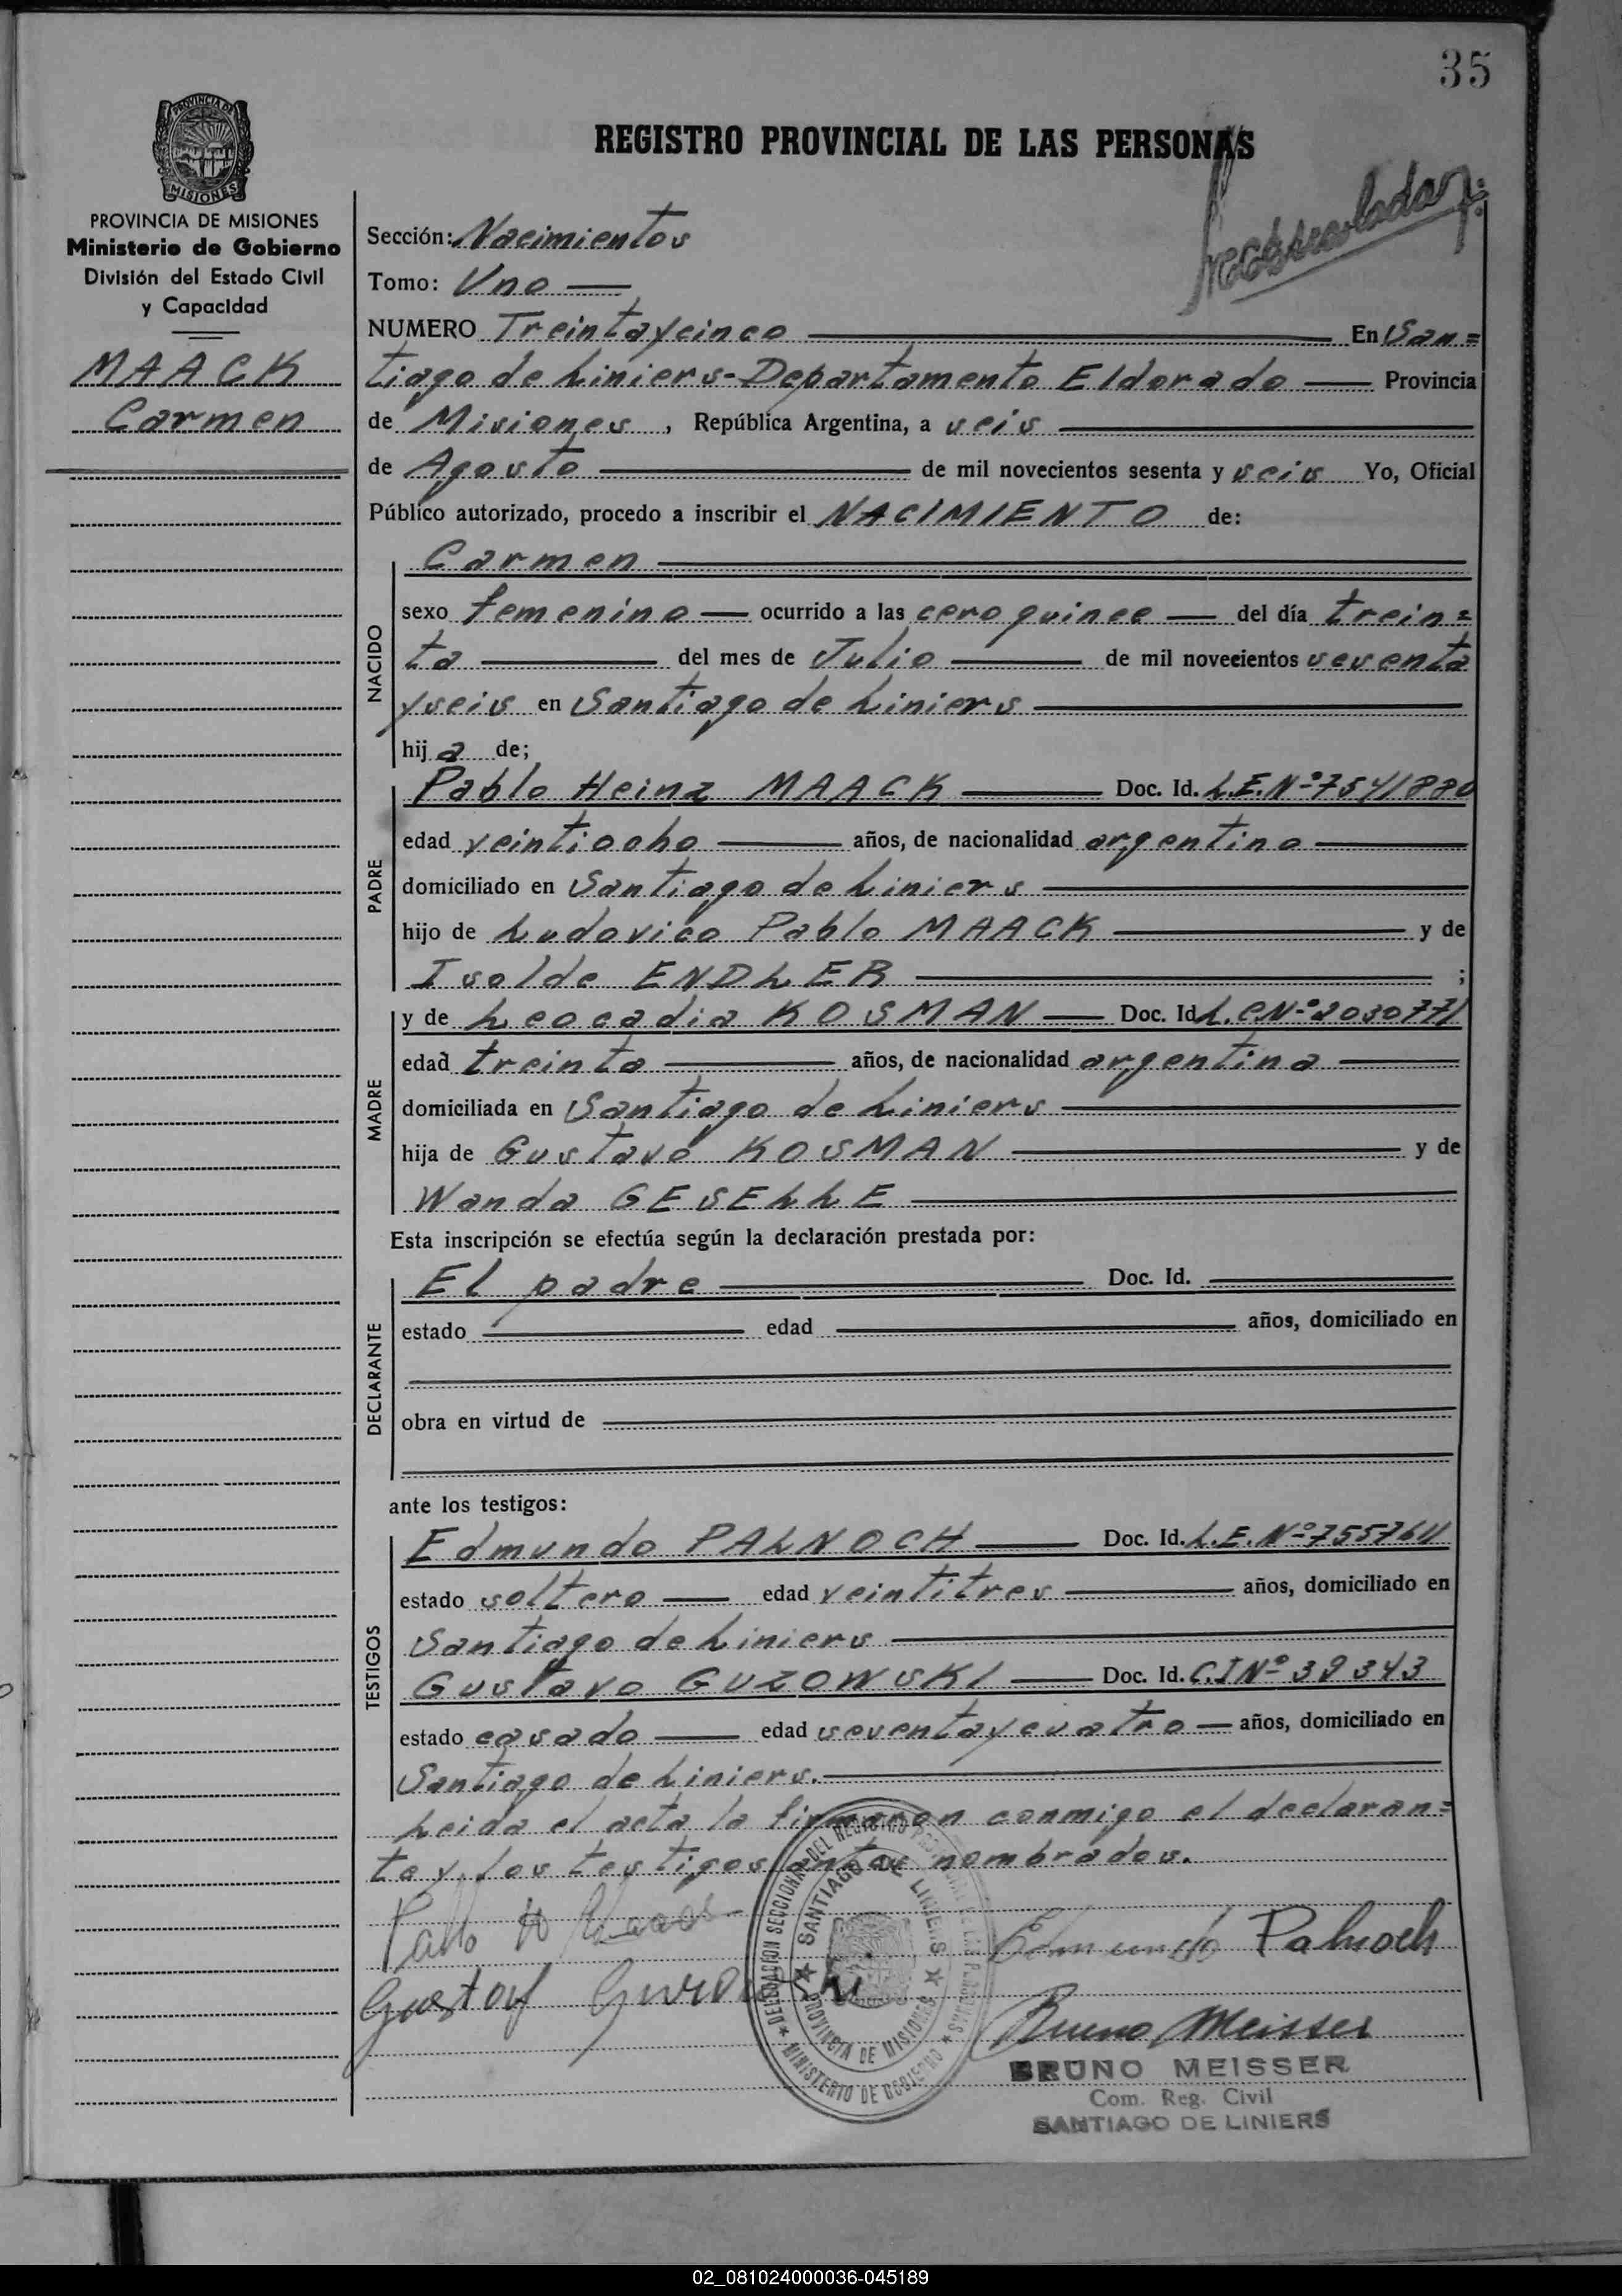 35
REGISTRO PROVINCIAL DE LAS PERSONAS
PROVINCIA DE MISIONES
MISIONES
PROVINCIA DE MISIONES
Ministerio de Gobierno
División del Estado Civil
y Capacidad
MAACK
Carmen
Sección: Nacimientos
Tomo: Uno
NUMERO Treintaycinco En San=
tiago de Liniers-Departamento Eldorado Provincia
de Misiones, República Argentina, a seis
de Agosto de mil novecientos sesenta y seis Yo, Oficial
Público autorizado, procedo a inscribir el NACIMIENTO de:
NACIDO
Carmen
sexo femenino ocurrido a las cero quince del día trein=
ta del mes de Julio de mil novecientos sesenta
yseis en Santiago de Liniers
hija de;
PADRE
Pablo Heinz MAACK Doc. Id. L.E.Nº7541880
edad veintiocho años, de nacionalidad argentino
domiciliado en Santiago de Liniers
hijo de Ludovico Pablo MAACK y de
Isolde ENDLER ;
MADRE
y de Leocadia KOSMAN Doc. Id. L.C.Nº2030771
edad treinta años, de nacionalidad argentina
domiciliada en Santiago de Liniers
hija de Gustavo KOSMAN y de
Wanda GESELLE
Esta inscripción se efectúa según la declaración prestada por:
DECLARANTE
El padre Doc. Id.
estado edad años, domiciliado en
obra en virtud de
ante los testigos:
TESTIGOS
Edmundo PALNOCH Doc. Id. L.E.Nº
estado soltero edad veintitres años, domiciliado en
Santiago de Liniers
Gustavo GUZOWSKI Doc. Id. C.I Nº 39343
estado casado edad sesentaycuatro años, domiciliado en
Santiago de Liniers.
Leida el acta la firmaron conmigo el declaran=
te y los testigos antes nombrados.
Edmundo Palnoch
Gustav
Bruno Meisser
DELEGACION SECCIONAL DEL REGISTRO PROVINCIAL DE LAS PERSONAS ★ MINISTERIO DE GOBIERNO ★
SANTIAGO DE LINIERS ★ PROVINCIA DE MISIONES ★
BRUNO MEISSER
Com. Reg. Civil
SANTIAGO DE LINIERS
02_081024000036-045189